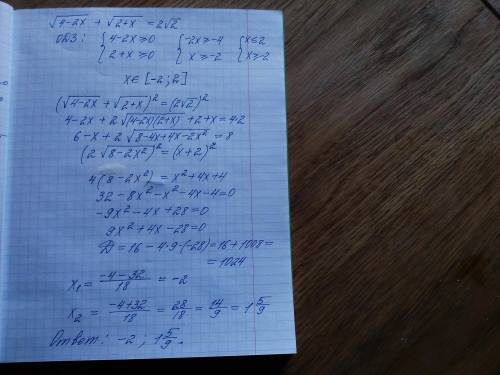 √4-2x + √2+x = 2√2
ОДЗ: { 4-2x ≥ 0 { -2x ≥ -4 { x ≤ 2
{ 2+x ≥ 0 { x ≥ -2 { x ≥ -2
x ∈ [-2; 2]
(√4-2x + √2+x)² = (2√2)²
4-2x + 2√(4-2x)(2+x) + 2+x = 42
6-x + 2√8-4x+4x-2x² = 8
(2√8-2x²)² = (x+2)²
4(8-2x²) = x²+4x+4
32-8x²-x²-4x-4=0
-9x²-4x+28=0
9x²+4x-28=0
D = 16-4·9·(-28)=16+1008=
= 1024
x₁ = -4-32/18 = -2
x₂ = -4+32/18 = 28/18 = 14/9 = 1 5/9
Ответ: -2; 1 5/9.